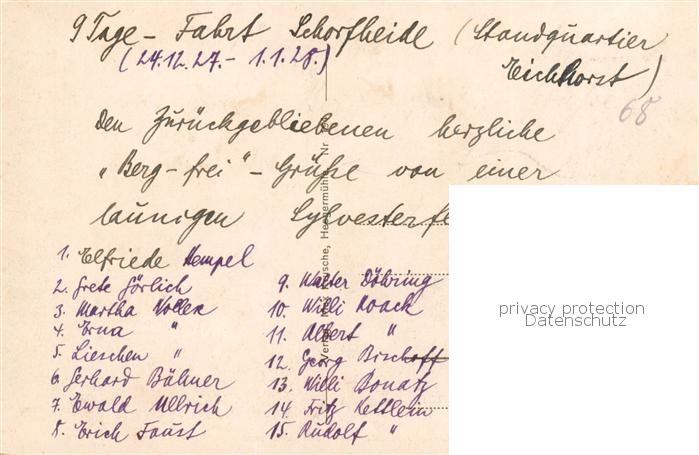 9 Tage - Fahrt Schorfheide (Standquartier
(24.12.27. - 1.1.28.) Eichhorst)
68
Den Zurückgebliebenen herzliche
"Berg-frei" - Grüße von einer
launigen Sylvesterfe
1. Elfriede Hempel
2. Grete Görlich
3. Martha
4. Erna "
5. Lieschen "
6. Gerhard Bähner
7. Ewald Ullrich
8. Erich Faust
9. Walter Döhring
10. Willi Noack
11. Albert "
12. Georg Bischoff
13. Willi Donatz
14. Fritz Kettlein
15. Rudolf "
privacy protection
Datenschutz